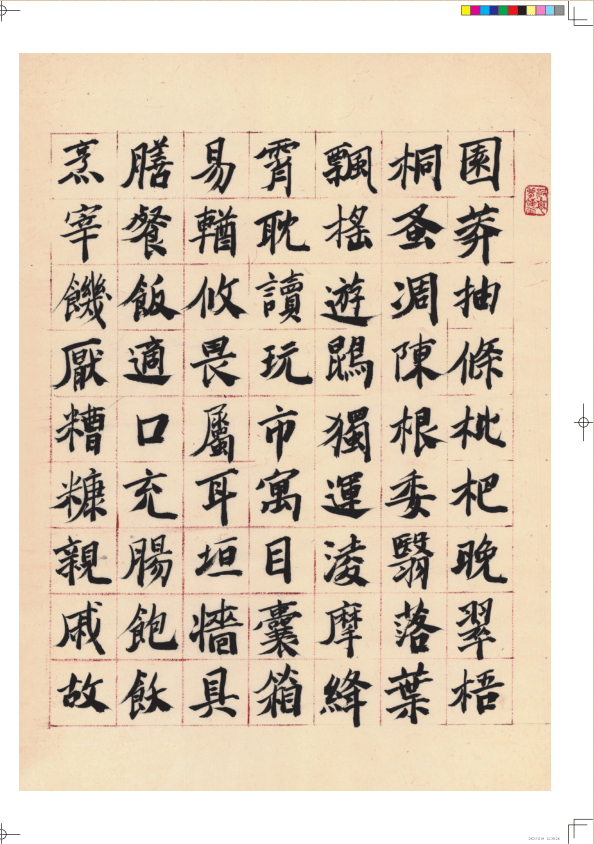 園莽抽條枇杷晚翠梧
桐蚤凋陳根委翳落葉
飄搖遊鵾獨運淩摩絳
霄耽讀玩市寓目囊箱
易輶攸畏屬耳垣牆具
膳餐飯適口充腸飽飫
烹宰饑厭糟糠親戚故